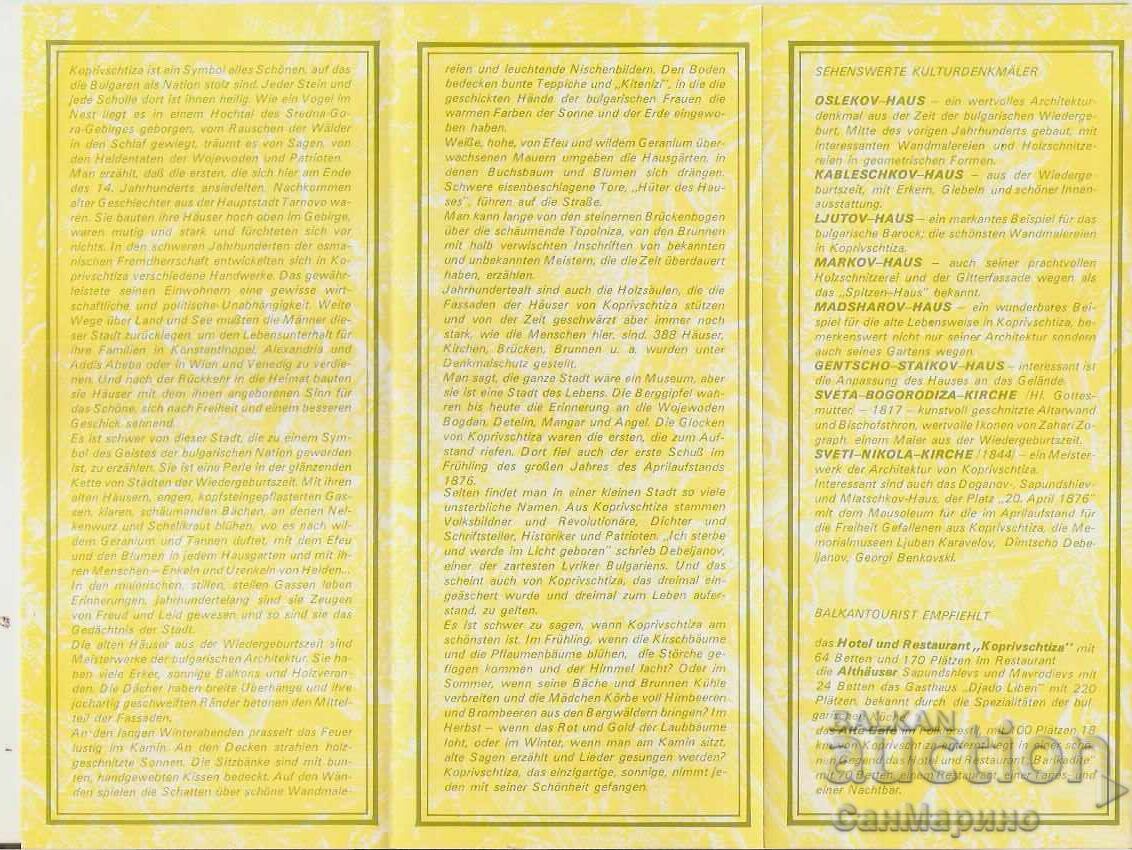 Koprivschtiza ist ein Symbol alles Schönen, auf das
die Bulgaren als Nation stolz sind. Jeder Stein und
jede Scholle dort ist ihnen heilig. Wie ein Vogel im
Nest liegt es in einem Hochtal des Sredna-Go-
ra-Gebirges geborgen, vom Rauschen der Wälder
in den Schlaf gewiegt, träumt es von Sagen, von
den Heldentaten der Wojewoden und Patrioten.
Man erzählt, daß die ersten, die sich hier am Ende
des 14. Jahrhunderts ansiedelten, Nachkommen
alter Geschlechter aus der Hauptstadt Tarnovo wa-
ren. Sie bauten ihre Häuser hoch oben im Gebirge,
waren mutig und stark und fürchteten sich vor
nichts. In den schweren Jahrhunderten der osma-
nischen Fremdherrschaft entwickelten sich in Ko-
privschtiza verschiedene Handwerke. Das gewähr-
leistete seinen Einwohnern eine gewisse wirt-
schaftliche und politische Unabhängigkeit. Weite
Wege über Land und See mußten die Männer die-
ser Stadt zurücklegen, um den Lebensunterhalt für
ihre Familien in Konstantinopel, Alexandria und
Addis Abeba oder in Wien und Venedig zu verdie-
nen. Und nach der Rückkehr in die Heimat bauten
sie Häuser mit dem ihnen angeborenen Sinn für
das Schöne, sich nach Freiheit und einem besseren
Geschick sehnend.
Es ist schwer von dieser Stadt, die zu einem Sym-
bol des Geistes der bulgarischen Nation geworden
ist, zu erzählen. Sie ist eine Perle in der glänzenden
Kette von Städten der Wiedergeburtszeit. Mit ihren
alten Häusern, engen, kopfsteingepflasterten Gas-
sen, klaren, schäumenden Bächen, an denen Nel-
kenwurz und Schellkraut blühen, wo es nach wil-
dem Geranium und Tannen duftet, mit dem Efeu
und den Blumen in jedem Hausgarten und mit ih-
ren Menschen – Enkeln und Urenkeln von Helden...
In den malerischen, stillen, steilen Gassen leben
Erinnerungen, jahrhundertelang sind sie Zeugen
von Freud und Leid gewesen und so sind sie das
Gedächtnis der Stadt.
Die alten Häuser aus der Wiedergeburtszeit sind
Meisterwerke der bulgarischen Architektur. Sie ha-
ben viele Erker, sonnige Balkons und Holzveran-
den. Die Dächer haben breite Überhänge und ihre
jochartig geschweiften Ränder betonen den Mittel-
teil der Fassaden.
An den langen Winterabenden prasselt das Feuer
lustig im Kamin. An den Decken strahlen holz-
geschnitzte Sonnen. Die Sitzbänke sind mit bun-
ten, handgewebten Kissen bedeckt. Auf den Wän-
den spielen die Schatten über schöne Wandmale-
reien und leuchtende Nischenbildern. Den Boden
bedecken bunte Teppiche und „Kitenizi", in die die
geschickten Hände der bulgarischen Frauen die
warmen Farben der Sonne und der Erde eingewo-
ben haben.
Weiße, hohe, von Efeu und wildem Geranium über-
wachsenen Mauern umgeben die Hausgärten, in
denen Buchsbaum und Blumen sich drängen.
Schwere eisenbeschlagene Tore, „Hüter des Hau-
ses", führen auf die Straße.
Man kann lange von den steinernen Brückenbogen
über die schäumende Topolniza, von den Brunnen
mit halb verwischten Inschriften von bekannten
und unbekannten Meistern, die die Zeit überdauert
haben, erzählen.
Jahrhundertealt sind auch die Holzsäulen, die die
Fassaden der Häuser von Koprivschtiza stützen
und von der Zeit geschwärzt aber immer noch
stark, wie die Menschen hier, sind. 388 Häuser,
Kirchen, Brücken, Brunnen u. a. wurden unter
Denkmalschutz gestellt.
Man sagt, die ganze Stadt wäre ein Museum, aber
sie ist eine Stadt des Lebens. Die Berggipfel wah-
ren bis heute die Erinnerung an die Wojewoden
Bogdan, Detelin, Mangar und Angel. Die Glocken
von Koprivschtiza waren die ersten, die zum Auf-
stand riefen. Dort fiel auch der erste Schuß im
Frühling des großen Jahres des Aprilaufstands
1876.
Selten findet man in einer kleinen Stadt so viele
unsterbliche Namen. Aus Koprivschtiza stammen
Volksbildner und Revolutionäre, Dichter und
Schriftsteller, Historiker und Patrioten. „Ich sterbe
und werde im Licht geboren" schrieb Debeljanov,
einer der zartesten Lyriker Bulgariens. Und das
scheint auch von Koprivschtiza, das dreimal ein-
geäschert wurde und dreimal zum Leben aufer-
stand, zu gelten.
Es ist schwer zu sagen, wann Koprivschtiza am
schönsten ist. Im Frühling, wenn die Kirschbäume
und die Pflaumenbäume blühen, die Störche ge-
flogen kommen und der Himmel lacht? Oder im
Sommer, wenn seine Bäche und Brunnen Kühle
verbreiten und die Mädchen Körbe voll Himbeeren
und Brombeeren aus den Bergwäldern bringen? Im
Herbst – wenn das Rot und Gold der Laubbäume
loht, oder im Winter, wenn man am Kamin sitzt,
alte Sagen erzählt und Lieder gesungen werden?
Koprivschtiza, das einzigartige, sonnige, nimmt je-
den mit seiner Schönheit gefangen.
SEHENSWERTE KULTURDENKMÄLER
OSLEKOV–HAUS – ein wertvolles Architektur-
denkmal aus der Zeit der bulgarischen Wiederge-
burt, Mitte des vorigen Jahrhunderts gebaut, mit
interessanten Wandmalereien und Holzschnitze-
reien in geometrischen Formen.
KABLESCHKOV–HAUS – aus der Wiederge-
burtszeit, mit Erkern, Giebeln und schöner Innen-
ausstattung.
LJUTOV–HAUS – ein markantes Beispiel für das
bulgarische Barock; die schönsten Wandmalereien
in Koprivschtiza.
MARKOV–HAUS – auch seiner prachtvollen
Holzschnitzerei und der Gitterfassade wegen als
das „Spitzen–Haus" bekannt.
MADSHAROV–HAUS – ein wunderbares Bei-
spiel für die alte Lebensweise in Koprivschtiza, be-
merkenswert nicht nur seiner Architektur sondern
auch seines Gartens wegen.
GENTSCHO–STAIKOV–HAUS – interessant ist
die Anpassung des Hauses an das Gelände.
SVETA–BOGORODIZA–KIRCHE /Hl. Gottes-
mutter. – 1817 – kunstvoll geschnitzte Altarwand
und Bischofsthron, wertvolle Ikonen von Zahari Zo-
graph, einem Maler aus der Wiedergeburtszeit.
SVETI–NIKOLA–KIRCHE (1844) – ein Meister-
werk der Architektur von Koprivschtiza.
Interessant sind auch das Doganov-, Sapundshiev-
und Mlatschkov-Haus, der Platz „20. April 1876"
mit dem Mausoleum für die im Aprilaufstand für
die Freiheit Gefallenen aus Koprivschtiza, die Me-
morialmuseen Ljuben Karavelov, Dimtscho Debe-
ljanov, Georgi Benkovski.
BALKANTOURIST EMPFIEHLT
das Hotel und Restaurant „Koprivschtiza" mit
64 Betten und 170 Plätzen im Restaurant
die Althäuser Sapundshievs und Mavrodievs mit
24 Betten das Gasthaus „Djado Liben" mit 220
Plätzen, bekannt durch die Spezialitäten der bul-
garischen Küche
das Alte Café im Volksstil, mit 100 Plätzen 18
km von Koprivschtiza entfernt liegt in einer schö-
nen Gegend das Hotel und Restaurant „Barikadite"
mit 70 Betten, einem Restaurant, einer Tages- und
einer Nachtbar.
BALKAN
auction
СанМарино